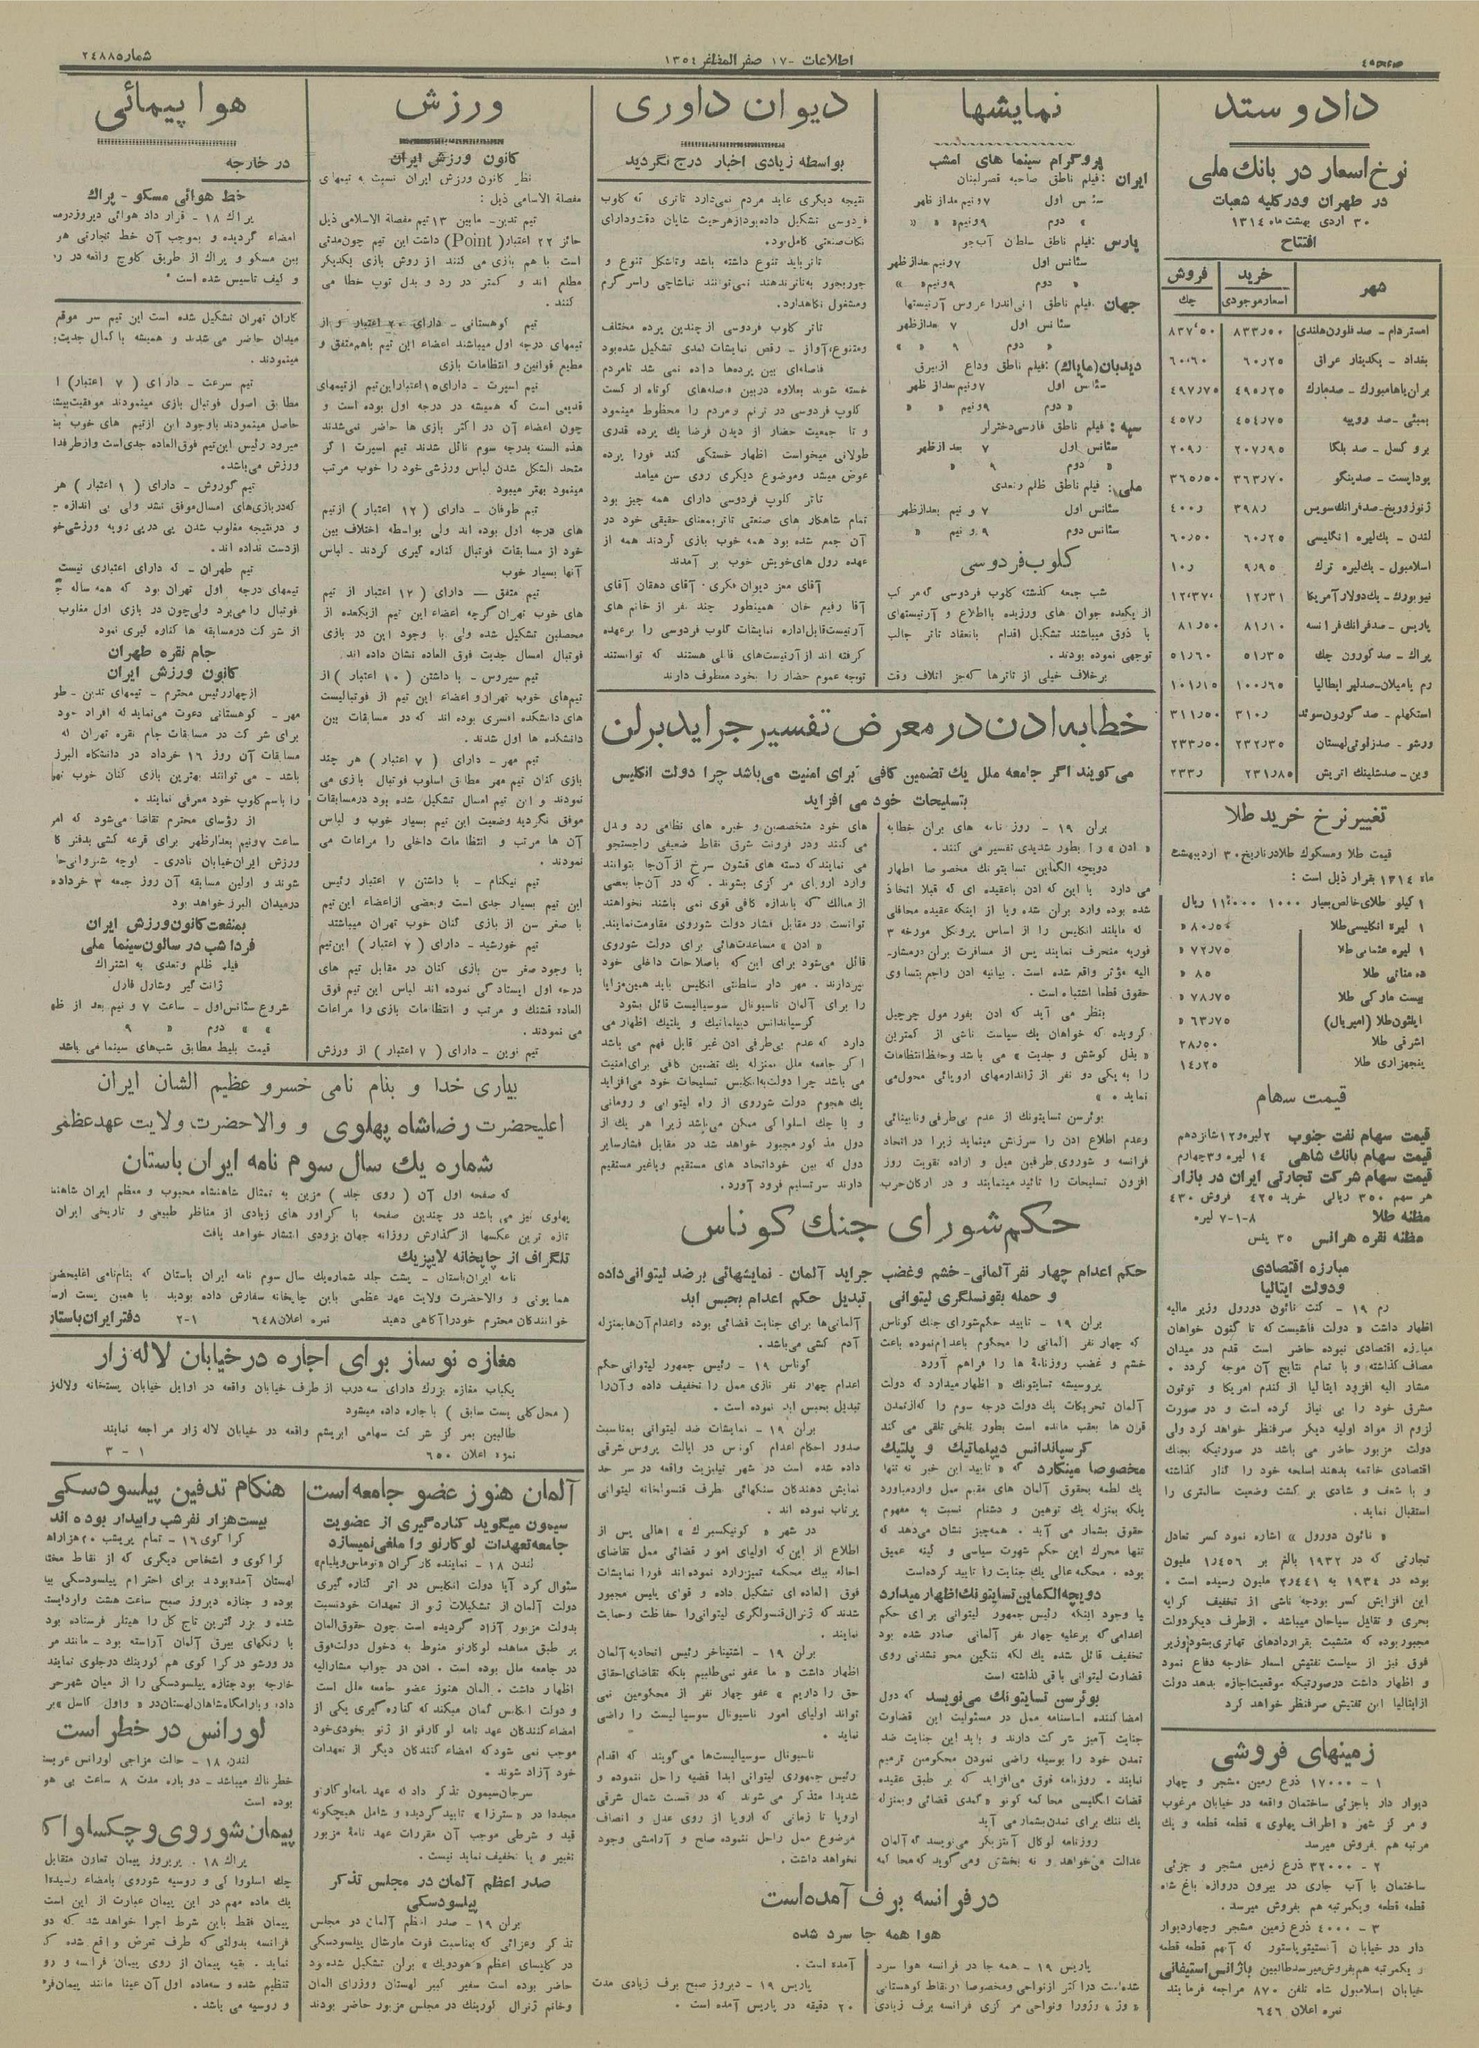 شماره ۲۴۸۸۵
اطلاعات - ۱۷ صفر المظفر ۱۳۵۴
داد و ستد
نرخ اسعار در بانك ملی
در طهران و در کلیه شعبات
۳۰ اردی بهشت ماه ۱۳۱۴
افتتاح
شهر خرید فروش
اسعار موجودی چك
امستردام - صد فلورن هلندی ۸۳۳٫۵۰ ۸۳۷٫۵۰
بغداد - یکدینار عراقی ۶۰٫۲۵ ۶۰٫۶۰
برلن یا هامبورك - صد مارك ۴۹۵٫۲۵ ۴۹۷٫۷۵
بمبئی - صد روپیه ۴۵۴٫۷۵ ۴۵۷٫
بروکسل - صد بلگا ۲۰۷٫۹۵ ۲۰۹٫
بوداپست - صد پنگو ۳۶۳٫۷۰ ۳۶۵٫۵۰
ژنو زوریخ - صد فرانك سویس ۳۹۸٫ ۴۰۰٫
لندن - یك لیره انگلیسی ۶۰٫۲۵ ۶۰٫۵۰
اسلامبول - یك لیره ترك ۹٫۹۵ ۱۰٫
نیویورك - یك دولار آمریکا ۱۲٫۳۱ ۱۲٫۳۷
پاریس - صد فرانك فرانسه ۸۱٫۱۰ ۸۱٫۵۰
پراك - صد کورون چك ۵۱٫۳۵ ۵۱٫۶۰
رم یا میلان - صد لیر ایطالیا ۱۰۰٫۶۵ ۱۰۱٫۱۵
استکهلم - صد کورون سوئد ۳۱۰٫ ۳۱۱٫۵۰
ورشو - صد زلوتی لهستان ۲۳۲٫۳۵ ۲۳۳٫۵۰
وین - صد شلینك اتریش ۲۳۱٫۸۵ ۲۳۳٫
تغییر نرخ خرید طلا
قیمت طلا و مسکوك طلا در تاریخ ۳۰ اردیبهشت
ماه ۱۳۱۴ بقرار ذیل است :
۱ کیلو طلای خالص بعیار ۱۰۰۰ ۱۱٫۰۰۰ ریال
۱ لیره انگلیسی طلا ۸۰٫۵۰ «
۱ لیره عثمانی طلا ۷۲٫۷۵ «
ده مناتی طلا ۸۵ «
بیست مارکی طلا ۷۸٫۷۵ «
اپلئون طلا (امپریال) ۶۳٫۷۵ «
اشرفی طلا ۲۸٫۵۰
پنجهزاری طلا ۱۴٫۲۵
قیمت سهام
قیمت سهام نفت جنوب ۲ لیره و ۱۲ شانزدهم
قیمت سهام بانك شاهی ۱۴ لیره و ۳ چهارم
قیمت سهام شرکت تجارتی ایران در بازار
هر سهم ۳۵۰ ریالی خرید ۴۲۵ فروش ۴۳۰
مظنه طلا ۸-۱-۷ لیره
مظنه نقره هر انس ۳۵ پنس
مبارزه اقتصادی
و دولت ایتالیا
رم ۱۹ - کنت تائون دورول وزیر مالیه
اظهار داشت « دولت فاشیست که تا کنون خواهان
مبارزه اقتصادی نبوده حاضر است قدم در میدان
مصاف گذاشته و با تمام نتایج آن موجه گردد .
مشار الیه افزود ایتالیا از گندم امریکا و توتون
مشرق خود را بی نیاز کرده است و در صورت
لزوم از مواد اولیه دیگر صرفنظر خواهد کرد ولی
دولت مزبور حاضر می باشد در صورتیکه بجنك
اقتصادی خاتمه بدهند اسلحه خود را کنار گذاشته
و با شعف و شادی برگشت وضعیت سالمتری را
استقبال نماید .
« تائون دورول » اشاره نمود کسر تعادل
تجارتی که در ۱۹۳۲ بالغ بر ۱٫۴۵۶ ملیون
بوده در ۱۹۳۴ به ۲٫۴۴۱ ملیون رسیده است .
این افزایش کسر بودجه ناشی از تخفیف کرایه
بحری و تقلیل سیاحان میباشد . از طرف دیگر دولت
مجبور بوده که متشبث بقراردادهای تهاتری بشود وزیر
فوق نیز از سیاست تفتیش اسعار خارجه دفاع نمود
و اظهار داشت در صورتیکه موقعیت اجازه بدهد دولت
از ایتالیا این تفتیش صرفنظر خواهد کرد
زمینهای فروشی
۱ - ۱۷۰۰۰ ذرع زمین مشجر و چهار
دیوار دار با جزئی ساختمان واقعه در خیابان مرغوب
و مرکز شهر « اطراف پهلوی » قطعه قطعه و یك
مرتبه هم بفروش میرسد
۲ - ۳۲۰۰۰ ذرع زمین مشجر و جزئی
ساختمان با آب جاری در بیرون دروازه باغ شاه
قطعه قطعه و یکمرتبه هم بفروش میرسد .
۳ - ۴۰۰۰ ذرع زمین مشجر و چهار دیوار
دار در خیابان آنستیتو پاستور که آنهم قطعه قطعه
و یکمرتبه هم بفروش میرسد طالبین باژانس استیفانی
خیابان اسلامبول شاه تلفن ۸۷۰ مراجعه فرمایند
نمره اعلان ۶۴۶
نمایشها
پروگرام سینما های امشب
ایران : فیلم ناطق صاحبه قصر لبنان
سئانس اول ۷ و نیم بعد از ظهر
« دوم ۹ و نیم « «
پارس : فیلم ناطق سلطان آبجو
سئانس اول ۷ و نیم بعد از ظهر
« دوم ۹ و نیم « «
جهان : فیلم ناطق عروس آرتیستها
سئانس اول ۷ بعد از ظهر
« دوم ۹ « «
دیدبان (مایاك) : فیلم ناطق وداع از بیرق
سئانس اول ۷ و نیم بعد از ظهر
« دوم ۹ و نیم « «
سپه : فیلم ناطق فارسی دختر لر
سئانس اول ۷ بعد از ظهر
« دوم ۹ «
ملی : فیلم ناطق ظلم و تعدی
سئانس اول ۷ و نیم بعد از ظهر
سئانس دوم ۹ و نیم «
کلوب فردوسی
شب جمعه گذشته کلوب فردوسی که مرکب
از یکعده جوان های ورزیده با اطلاع و آرتیستهای
با ذوق میباشند تشکیل اقدام بانعقاد تاتر جالب
توجهی نموده بودند .
برخلاف خیلی از تاترها که جز اتلاف وقت
دیوان داوری
بواسطه زیادی اخبار درج نگردید
نتیجه دیگری عاید مردم نمی دارد تاتری که کلوب
فردوسی تشکیل داده بود از هر حیث شایان دقت و دارای
نکات صنعتی کامل بود .
تاتر باید تنوع داشته باشد و تا شکل تنوع و
جوربجور به تاتر ندهند نمی توانند تماشاچی را سرگرم
و مشغول نگاهدارد .
تاتر کلوب فردوسی از چندین پرده مختلف
و متنوع ، آواز - رقص نمایشات کمدی تشکیل شده بود
فاصله ای بین پرده ها داده نمی شد تا مردم
خسته شوند بعلاوه در بین فاصله های کوتاه ارکست
کلوب فردوسی در ترنم و مردم را محظوظ مینمود
و تا جمعیت حضار از دیدن فرضا یك پرده قدری
طولانی میخواست اظهار خستگی کند فورا پرده
عوض میشد و موضوع دیگری روی سن میامد
تاتر کلوب فردوسی دارای همه چیز بود
تمام شاهکار های صنعتی تاتر بمعنای حقیقی خود در
آن جمع شده بود همه خوب بازی کردند همه از
عهده رول های خویش خوب بر آمدند
آقای معز دیوان فکری . آقای دهقان آقای
آقا رفیع خان همینطور چند نفر از خانم های
آرتیست قابل اداره نمایشات کلوب فردوسی را برعهده
گرفته اند از آرتیست های قابلی هستند که توانستند
توجه عموم حضار را بخود معطوف دارند
خطابه ادن در معرض تفسیر جراید برلن
می گویند اگر جامعه ملل یك تضمین کافی برای امنیت می باشد چرا دولت انگلیس
بتسلیحات خود می افزاید
برلن ۱۹ - روز نامه های برلن خطابه
« ادن » را بطور شدیدی تفسیر می کنند .
دویچه الگماین تسایتونك مخصوصا اظهار
می دارد با این که ادن با عقیده ای که قبلا اتخاذ
شده بوده وارد برلن شده و یا از اینکه عقیده محافلی
که مایلند انگلیس را از اساس پروتکل مورخه ۳
فوریه منحرف نمایند پس از مسافرت برلن در مشار-
الیه مؤثر واقع شده است . بیانیه ادن راجع بتساوی
حقوق قطعا اشتباه است .
بنظر می آید که ادن بفور مول چرچیل
گرویده که خواهان یك سیاست ناشی از کمترین
« بذل کوشش و جدیت » می باشد و حفظ انتظامات
را به یکی دو نفر از ژاندارمهای اروپائی محول می
نماید . »
بوئرسن تسایتونك از عدم بی طرفی و نابینائی
و عدم اطلاع ادن را سرزنش مینماید زیرا در اتحاد
فرانسه و شوروی طرفین میل و اراده تقویت روز
افزون تسلیحات را تائید مینمایند و در ارکان حرب
های خود متخصصین و خبره های نظامی رد و بدل
می کنند و در فرونت شرق نقاط ضعیفی را جستجو
می نمایند که دسته های قشون سرخ از آن جا بتوانند
وارد اروپای مرکزی بشوند . که در آن جا بعضی
از ممالك که باندازه کافی قوی نمی باشند نخواهند
توانست در مقابل فشار دولت شوروی مقاومت نمایند .
« ادن » مساعدت هائی برای دولت شوروی
قائل می شود برای این که باصلاحات داخلی خود
بپردازند . مهر دار سلطنتی انگلیس باید همین مزایا
را برای آلمان ناسیونال سوسیالیست قائل بشود
کرسپاندانس دیپلماتیك و پلتیك اظهار می
دارد که عدم بی طرفی ادن غیر قابل فهم می باشد
اگر جامعه ملل بمنزله یك تضمین کافی برای امنیت
می باشد چرا دولت انگلیس تسلیحات خود می افزاید
یك هجوم دولت شوروی از راه لیتوانی و رومانی
و یا چك اسلواکی ممکن می باشد زیرا هر یك از
دول مذکور مجبور خواهد شد در مقابل فشار سایر
دول که بین خود اتحاد های مستقیم و یا غیر مستقیم
دارند سر تسلیم فرود آورد .
حکم شورای جنك کوناس
حکم اعدام چهار نفر آلمانی - خشم و غضب جراید آلمان - نمایشهائی بر ضد لیتوانی داده
و حمله بقونسلگری لیتوانی تبدیل حکم اعدام بحبس ابد
برلن ۱۹ - تایید حکم شورای جنك کوناس
که چهار نفر آلمانی را محکوم باعدام نموده باعث
خشم و غضب روزنامه ها را فراهم آورد .
پروسیشه تسایتونك « اظهار میدارد که دولت
آلمان تحریکات یك دولت درجه سوم را که از تمدن
قرن ها بعقب مانده است بطور تلخی تلقی می کند
کرسپاندانس دیپلماتیك و پلتیك
مخصوصا مینگارد که « تایید این خبر نه تنها
یك لطمه بحقوق آلمان های مقیم ممل وارد میاورد
بلکه بمنزله یك توهین و دشنام نسبت به مفهوم
حقوق بشمار می آید . همه چیز نشان می دهد که
تنها محرك این حکم شهوت سیاسی و کینه عمیق
بوده . محکمه عالی یك جنایت را تایید کرده است
دویچه الگماین تسایتونك اظهار میدارد
با وجود اینکه رئیس جمهور لیتوانی برای حکم
اعدامی که بر علیه چهار نفر آلمانی صادر شده بود
تخفیف قائل شده یك لکه ننگین محو نشدنی روی
قضاوت لیتوانی باقی گذاشته است
بوئرسن تسایتونك می نویسد که دول
امضا کننده اساسنامه ممل در مسئولیت این قضاوت
جنایت آمیز شرکت دارند و باید این جنایت ضد
تمدن خود را بوسیله راضی نمودن محکومین ترمیم
نمایند . روزنامه فوق می افزاید که بر طبق عقیده
قضات انگلیسی محاکمه کونو « کمدی قضائی و بمنزله
یك ننك برای تمدن بشمار می آید
روزنامه لوکال آنتزیگر می نویسد که آلمان
عدالت می خواهد و نه بخشش و می گوید که محاکمه
آلمانی ها برای جنایت قضائی بوده و اعدام آن ها بمنزله
آدم کشی می باشد .
کوناس ۱۹ - رئیس جمهور لیتوانی حکم
اعدام چهار نفر نازی ممل را تخفیف داده و آن را
تبدیل بحبس ابد نموده است .
برلن ۱۹ - نمایشات ضد لیتوانی بمناسبت
صدور احکام اعدام کوناس در ایالت پروس شرقی
داده شده است در شهر تیلزیت واقعه در سر حد
نمایش دهندگان سنگهائی طرف قنسولخانه لیتوانی
پرتاب نموده اند .
در شهر « کونیکسبرك » اهالی پس از
اطلاع از این که اولیای امور قضائی ممل تقاضای
احاله بیك محکمه تمیز را رد نموده اند فورا نمایشات
فوق العاده ای تشکیل داده و قوای پلیس مجبور
شدند که ژنرال قنسولگری لیتوانی را حفاظت و حمایت
نمایند .
برلن ۱۹ - اشتیناخر رئیس اتحادیه آلمان
اظهار داشت « ما عفو نمی طلبیم بلکه تقاضای احقاق
حق را داریم » عفو چهار نفر از محکومین نمی
تواند اولیای امور ناسیونال سوسیالیست را راضی
نماید .
ناسیونال سوسیالیست ها می گویند که اقدام
رئیس جمهوری لیتوانی ابدا قضیه را حل ننموده و
شدیدا متذکر می شوند که در قسمت شمال شرقی
اروپا تا زمانی که اروپا از روی عدل و انصاف
موضوع ممل را حل ننموده صلح و آرامشی وجود
نخواهد داشت .
در فرانسه برف آمده است
هوا همه جا سرد شده
پاریس ۱۹ - همه جا در فرانسه هوا سرد
شده است در اکثر از نواحی و مخصوصا در نقاط کوهستانی
« وژ » و ژورا و نواحی مرکزی فرانسه برف زیادی
آمده است .
پاریس ۱۹ - دیروز صبح برف زیادی مدت
۲۰ دقیقه در پاریس آمده است .
ورزش
کانون ورزش ایران
نظر کانون ورزش ایران نسبت به تیمهای
مفصلة الاسامی ذیل :
تیم تدین - مابین ۱۳ تیم مفصلة الاسلامی ذیل
حائز ۲۲ اعتبار (Point) داشت این تیم چون مدتی
است با هم بازی می کنند از روش بازی یکدیگر
مطلع اند و کمتر در رد و بدل توپ خطا می
کنند .
تیم کوهستانی - دارای ۲۰ اعتبار و از
تیمهای درجه اول میباشند اعضاء این تیم باهم متفق و
مطیع قوانین و انتظامات بازی
تیم اسپرت - دارای ۱۵ اعتبار این تیم از تیمهای
قدیمی است که همیشه در درجه اول بوده است و
چون اعضاء آن در اکثر بازی ها حاضر نمی شدند
هذه السنه بدرجه سوم نائل شدند تیم اسپرت اگر
متحد الشکل شدن لباس ورزشی خود را خوب مرتب
مینمود بهتر میبود
تیم طوفان - دارای (۱۲ اعتبار) از تیم
های درجه اول بوده اند ولی بواسطه اختلاف بین
خود از مسابقات فوتبال کناره گیری کردند - لباس
آنها بسیار خوب
تیم متفق - دارای (۱۲ اعتبار از تیم
های خوب تهران گرچه اعضاء این تیم از یکعده از
محصلین تشکیل شده ولی با وجود این در بازی
فوتبال امسال جدیت فوق العاده نشان داده اند
تیم سیروس - با داشتن (۱۰ اعتبار) از
تیم های خوب تهران و اعضاء این تیم از فوتبالیست
های دانشکده افسری بوده اند که در مسابقات بین
دانشکده ها اول شدند .
تیم مهر - دارای (۷ اعتبار) هر چند
بازی کنان تیم مهر مطابق اسلوب فوتبال بازی می
نمودند و این تیم امسال تشکیل شده بود در مسابقات
موفق نگردید وضعیت این تیم بسیار خوب و لباس
آن ها مرتب و انتظامات داخلی را مراعات می
نمودند .
تیم نیکنام - با داشتن ۷ اعتبار رئیس
این تیم بسیار جدی است و بعضی از اعضاء این تیم
با صغر سن از بازی کنان خوب تهران میباشند
تیم خورشید - دارای (۷ اعتبار) این تیم
با وجود صغر سن بازی کنان در مقابل تیم های
درجه اول ایستادگی نموده اند لباس این تیم فوق
العاده قشنك و مرتب و انتظامات بازی را مراعات
می نمودند .
تیم نوین - دارای (۷ اعتبار) از ورزش
هوا پیمائی
در خارجه
خط هوائی مسکو - پراك
پراك ۱۸ - قرار داد هوائی دیروز در
امضاء گردیده و بموجب آن خط تجارتی
بین مسکو و پراك از طریق کلوج واقعه در
و کیف تاسیس شده است .
کاران تهران تشکیل شده است این تیم سر موقع
میدان حاضر می شدند و همیشه با کمال جدیت
مینمودند .
تیم سرعت - دارای (۷ اعتبار)
مطابق اصول فوتبال بازی مینمودند موفقیت
حاصل مینمودند با وجود این از تیم های خوب
میرود رئیس این تیم فوق العاده جدی است و از طرفدا
ورزش می باشد .
تیم کوروش - دارای (۱ اعتبار) هر
که در بازی های امسال موفق نشد ولی بی اندازه
و در نتیجه مغلوب شدن پی در پی رویه ورزشی
از دست نداده اند .
تیم طهران - که دارای اعتباری نیست
تیمهای درجه اول تهران بود که همه ساله
فوتبال را می برد ولی چون در بازی اول مغلوب
از شرکت در مسابقه ها کناره گیری نمود
جام نقره طهران
کانون ورزش ایران
از چهار رئیس محترم - تیمهای تدین - طو
مهر - کوهستانی دعوت می نماید که افراد خود
برای شرکت در مسابقات جام نقره تهران که
مسابقات آن روز ۱۶ خرداد در دانشگاه البرز
باشد - می توانند بهترین بازی کنان خوب
را باسم کلوپ خود معرفی نمایند .
از رؤسای محترم تقاضا می شود که
ساعت ۷ و نیم بعد از ظهر برای قرعه کشی بدفتر
ورزش ایران خیابان نادری - کوچه
شوند و اولین مسابقه آن روز جمعه ۳ خرداد
در میدان البرز خواهد بود
بمنفعت کانون ورزش ایران
فردا شب در سالون سینما ملی
فیلم ظلم و تعدی به اشتراك
ژانت گیز و شارل فارل
شروع سئانس اول - ساعت ۷ و نیم بعد از ظه
« « دوم « ۹
قیمت بلیط مطابق شب های سینما می باشد
بیاری خدا و بنام نامی خسرو عظیم الشان ایران
اعلیحضرت رضا شاه پهلوی و والاحضرت ولایت عهد عظمی
شماره یك سال سوم نامه ایران باستان
که صفحه اول آن (روی جلد) مزین به تمثال شاهنشاه محبوب و معظم ایران
پهلوی نیز می باشد در چندین صفحه با گراور های زیادی از مناظر طبیعی و تاریخی ایران
تازه ترین عکسها از گذارش روزانه جهان بزودی انتشار خواهد یافت
تلگراف از چاپخانه لایپزیك
نامه ایران باستان - پشت جلد شماره یك سال سوم نامه ایران باستان که بنام نامی اعلیحضر
همایونی و والاحضرت ولایت عهد عظمی باین چاپخانه سفارش داده بودید با همین پست
خوانندگان محترم خود را آگاهی دهید نمره اعلان ۶۴۸ ۱-۲ دفتر ایران باستان
مغازه نو ساز برای اجاره در خیابان لاله زار
یکباب مغازه بزرك دارای سه درب از طرف خیابان واقعه در اوایل خیابان پستخانه و لاله زار
(محل کلی پست سابق) با جاره داده میشود
طالبین بمرکز شرکت سهامی ابریشم واقعه در خیابان لاله زار مراجعه نمایند
نمره اعلان ۶۵۰ ۱ - ۳
آلمان هنوز عضو جامعه است
سیمون میگوید کناره گیری از عضویت
جامعه تعهدات لوکارنو را ملغی نمیسازد
لندن ۱۸ - نماینده کارگران « توماس ویلیام »
سئوال کرد آیا دولت انگلیس در اثر کناره گیری
دولت آلمان از تشکیلات ژنو از تعهدات خود نسبت
بدولت مزبور آزاد گردیده است چون حقوق آلمان
بر طبق معاهده لوکارنو منوط به دخول دولت فوق
در جامعه ملل بوده است . ادن در جواب مشار الیه
اظهار داشت . آلمان هنوز عضو جامعه ملل است
و دولت انگلیس گمان میکند که کناره گیری یکی از
امضاء کنندگان عهد نامه لوکارنو از ژنو بخودی خود
موجب نمی شود که امضاء کنندگان دیگر از تعهدات
خود آزاد شوند .
سرجان سیمون تذکر داد که عهد نامه لوکارنو
مجددا در « سترزا » تایید گردیده و شامل هیچگونه
قید و شرطی موجب آن مقررات عهد نامهٔ مزبور
تغییر « یا تخفیف نماید نیست .
صدر اعظم آلمان در مجلس تذکر
پیلسودسکی
برلن ۱۹ - صدر اعظم آلمان در مجلس
تذکر و عزائی که بمناسبت فوت مارشال پیلسودسکی
در کلیسای اعظم « هودویك » برلن تشکیل شده بود
حاضر بوده است سفیر کبیر لهستان و وزرای آلمان
و خانم ژنرال گورینك در مجلس مزبور حاضر بودند
هنکام تدفین پیلسودسکی
بیست هزار نفر شب را بیدار بوده اند
کراکوی ۱۶ - تمام پریشب ۲۰ هزار
کراکوی و اشخاص دیگری که از نقاط
لهستان آمده بودند برای احترام پیلسودسکی
بوده و جنازه دیروز صبح ساعت هشت وارد
شده و بزرگترین تاج گل را هیتلر فرستاده بود
با رنگهای بیرق آلمان آراسته بود - مانند
در ورشو در کراکوی هم گورینك در جلوی نمایند
خارجه بود جنازه پیلسودسکی را از میان شهر
داده و بارامگاه شاهان لهستان در « واول کاسل »
لورانس در خطر است
لندن ۱۸ - حالت مزاجی لورانس
خطرناك میباشد - دوباره مدت ۸ ساعت بی
بوده است
پیمان شوروی و چکسلواک
پراك ۱۸ - پریروز پیمان تعاون متقابل
چك اسلواکی و روسیه شوروی بامضاء رسید
یك ماده مهم در این پیمان عبارت از این است
پیمان فقط باین شرط اجرا خواهد شد که
فرانسه بدولتی که طرف تعرض واقع شده
نماید . بقیه پیمان از روی پیمان فرانسه و
تنظیم شده و سه ماده اول آن عینا مانند پیمان
و روسیه می باشد .